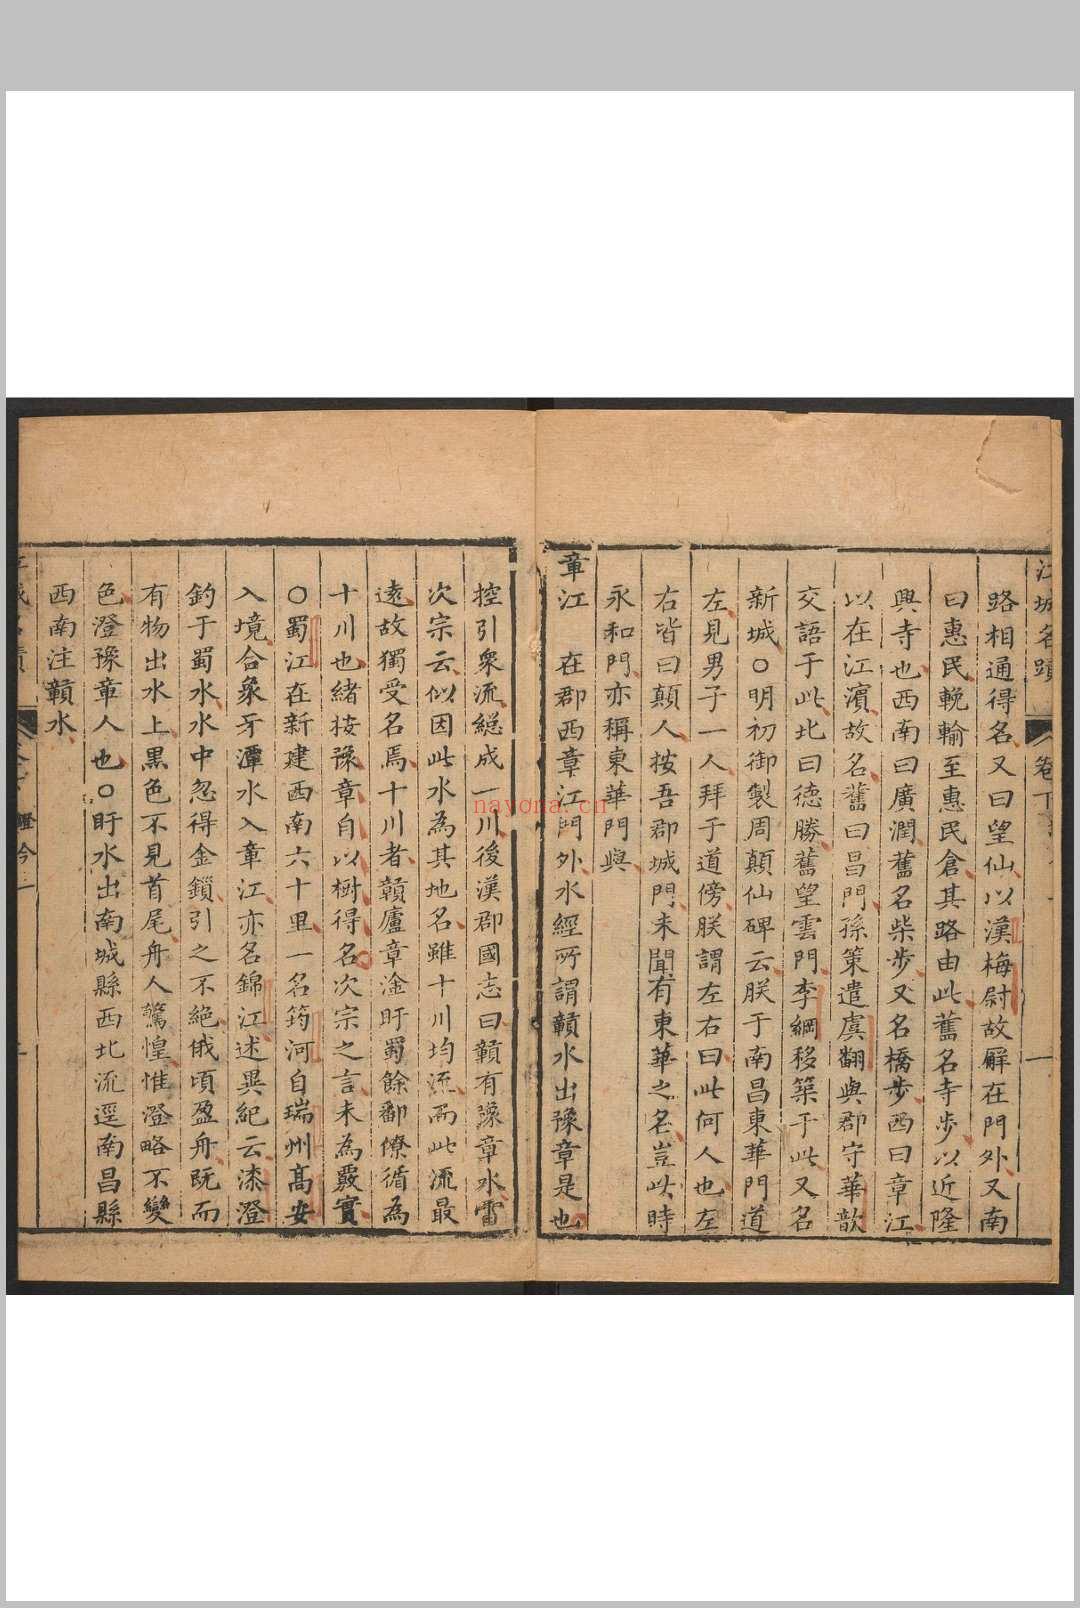 江城名蹟 卷下
路相通得名又曰望仙以漢梅尉故廨在門外又南
曰惠民輓輸至惠民倉其路由此舊名寺步以近隆
興寺也西南曰廣潤舊名柴步又名橋步西曰章江
以在江濱故名舊曰昌門孫策遣虞翻與郡守華歆
交語于此北曰德勝舊望雲門李綱移築于此又名
新城○明初御製周顛仙碑云朕于南昌東華門道
左見男子一人拜于道傍朕謂左右曰此何人也左
右皆曰顛人按吾郡城門未聞有東華之名豈此時
永和門亦稱東華門與
章江 在郡西章江門外水經所謂贛水出豫章是也
控引衆流總成一川後漢郡國志曰贛有豫章水雷
次宗云似因此水為其地名雖十川均流而此流最
遠故獨受名焉十川者贛廬章淦盱蜀餘鄱僚循為
十川也緒按豫章自以樹得名次宗之言未為覈實
○蜀江在新建西南六十里一名筠河自瑞州高安
入境合象牙潭水入章江亦名錦江述異紀云漆澄
釣于蜀水水中忽得金鎖引之不絕俄頃盈舟既而
有物出水上黑色不見首尾舟人驚惶惟澄略不變
色澄豫章人也○盱水出南城縣西北流逕南昌縣
西南注贛水
nayona.cn